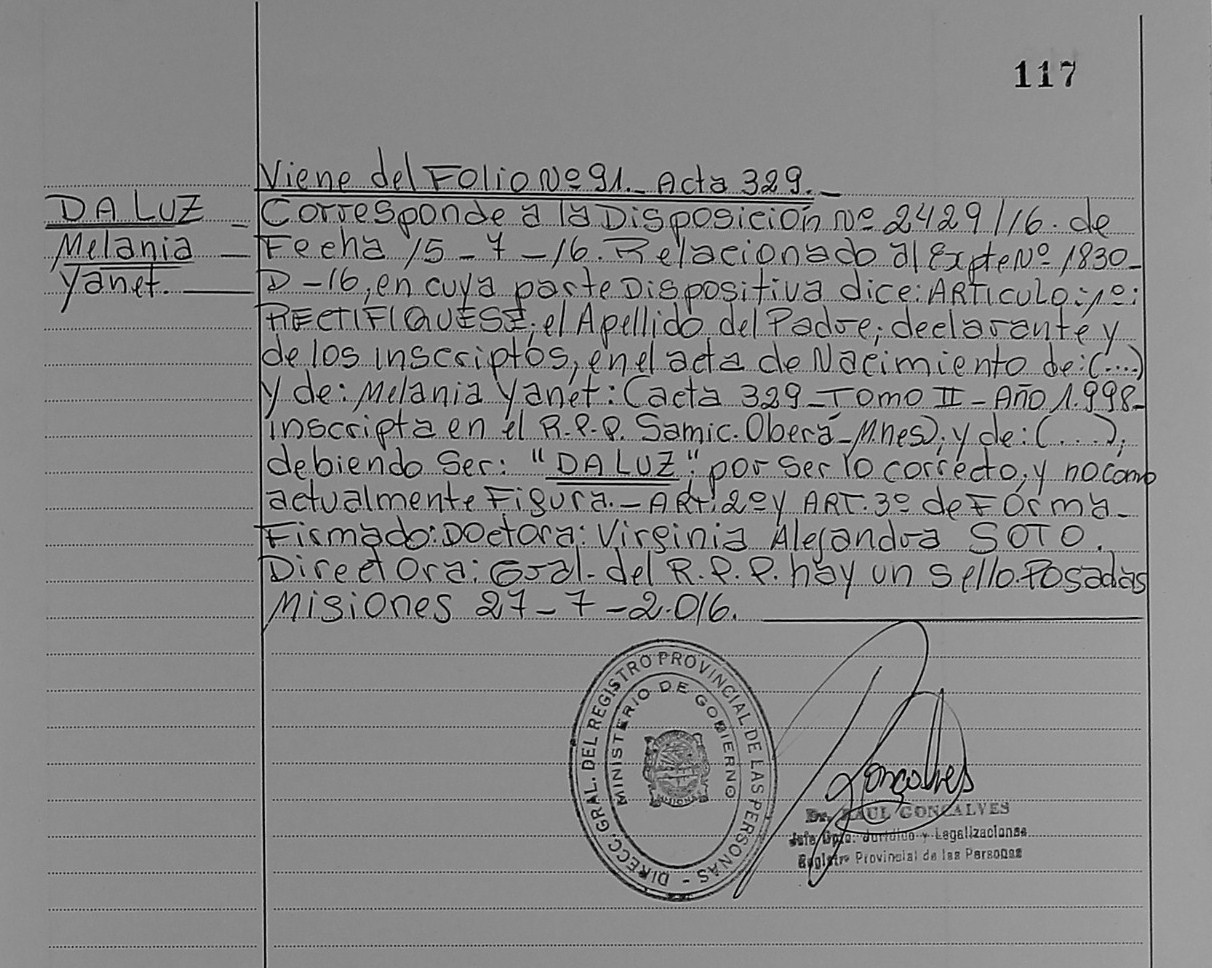 117
Viene del Folio Nº 91._ Acta 329._
DA LUZ _
Melania _
Yanet. __
Corresponde a la Disposición Nº 2429/16. de
Fecha 15_7_16. Relacionado al Expte Nº 1830_
D_16, en cuya parte Dispositiva dice: ARTICULO: 1º:
RECTIFIQUESE; el Apellido del Padre; declarante y
de los inscriptos, en el acta de Nacimiento de: (....)
y de: Melania Yanet: (acta 329_Tomo II_Año 1.998_
inscripta en el R.P.P. Samic. Oberá_Mnes), y de: (....),
debiendo Ser: "DA LUZ" por ser lo correcto, y no como
actualmente Figura._ ART. 2º y ART. 3º de Forma_
Firmado: Doctora: Virginia Alejandra SOTO.
Directora: Gral. del R.P.P. hay un sello. Posadas
Misiones 27_7_2.016. __
DIRECC. GRAL. DEL REGISTRO PROVINCIAL DE LAS PERSONAS -
MINISTERIO DE GOBIERNO
MISIONES
Gonçalves
Dr. RAUL GONCALVES
Jefe Dpto. Jurídico y Legalizaciones
Registro Provincial de las Personas